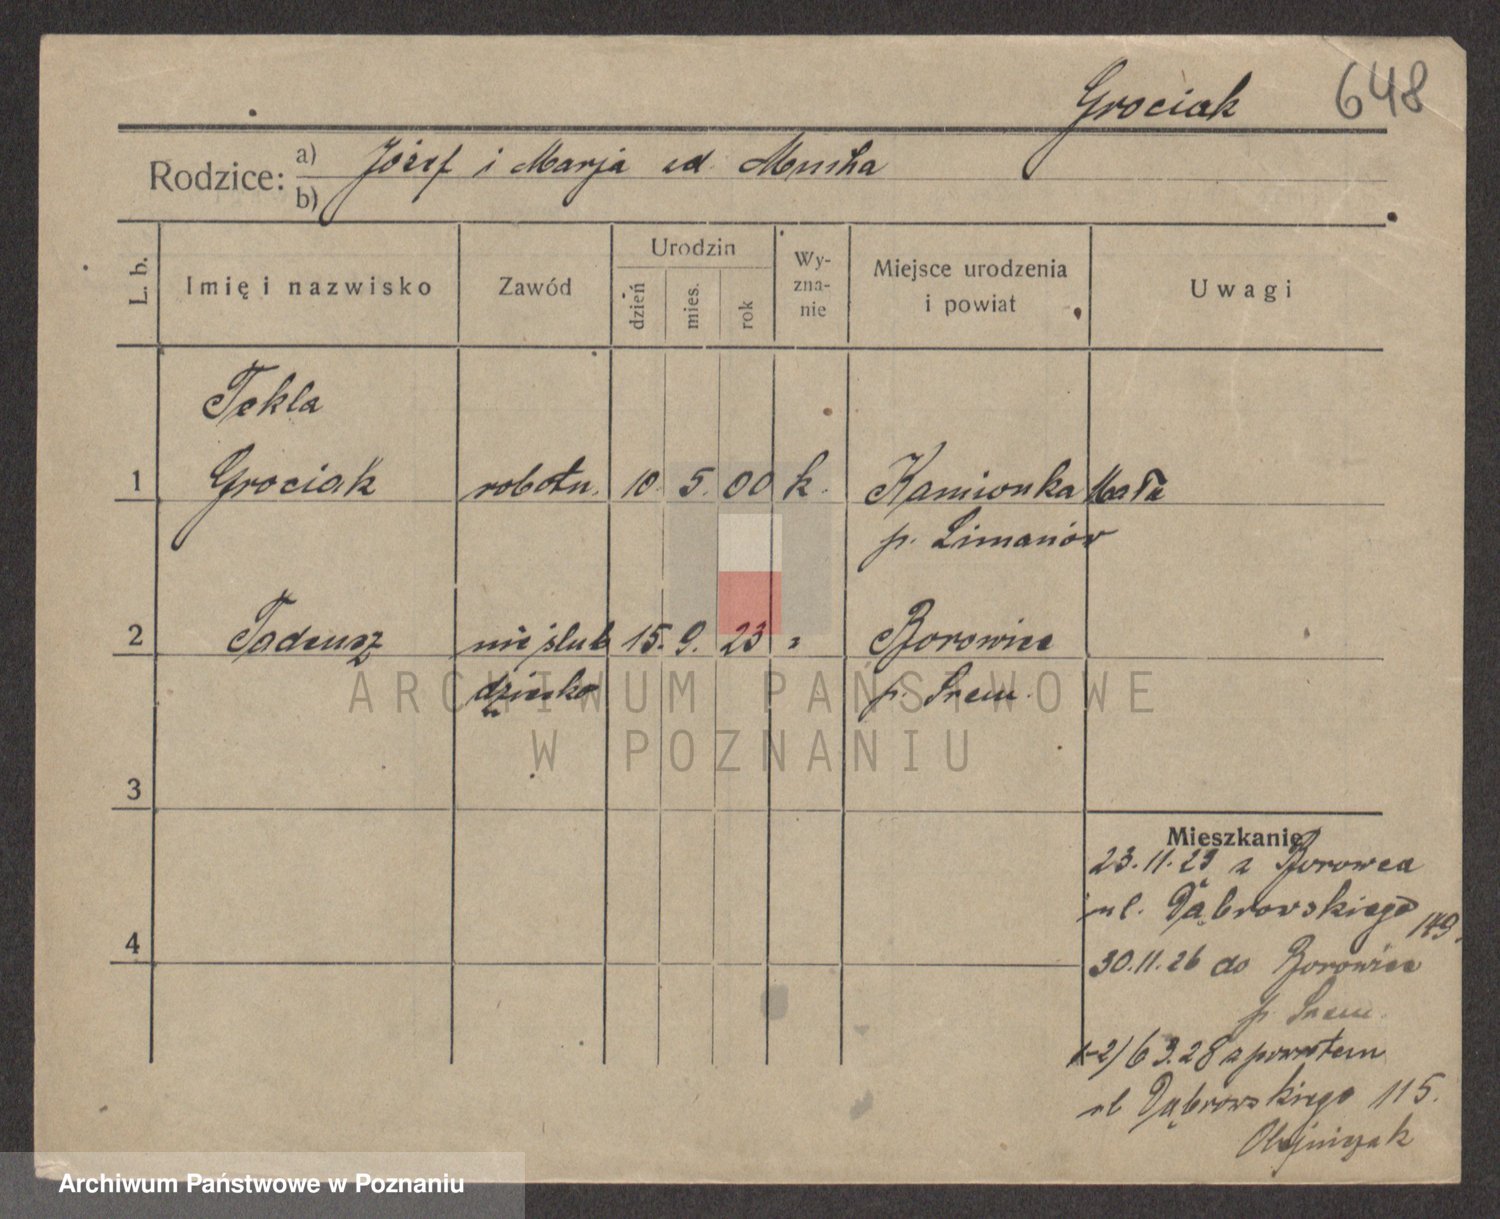 Grociak 648
Rodzice: a) Józef i Marja
b)
L. b.
Imię i nazwisko
Zawód
Urodzin
dzień
mies.
rok
Wy-
zna-
nie
Miejsce urodzenia
i powiat
Uwagi
Tekla
1 Grociak robotn. 10. 5. 00 k. Kamionka Mała
p. Limanów
2 Tadeusz nieślub 15. 9. 23 " Borowiec
dziecko p. Śrem.
3
4
Mieszkanie
23.11.23 z Borowca
ul. Dąbrowskiego 149.
30.11.26 do Borowiec
p. Śrem.
1-2/ 6 3.28 z powrotem
ul Dąbrowskiego 115.
Olejniczak
ARCHIWUM PAŃSTWOWE
W POZNANIU
Archiwum Państwowe w Poznaniu